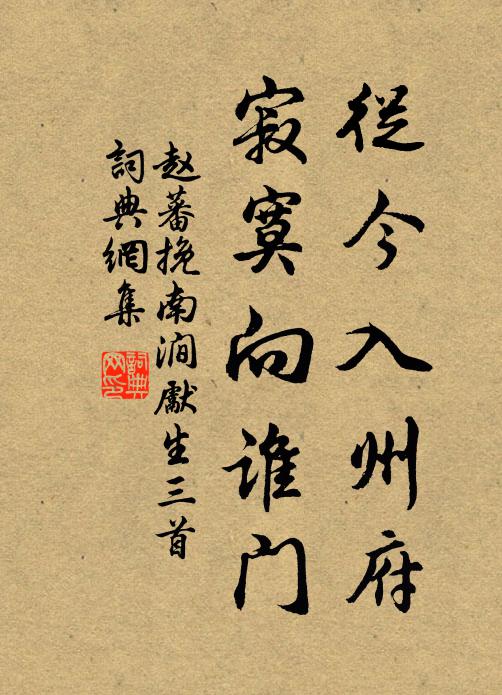 從今入州府
寂寞向誰門
赵蕃挽南澗獻生三首
詞典網集
詞典网印